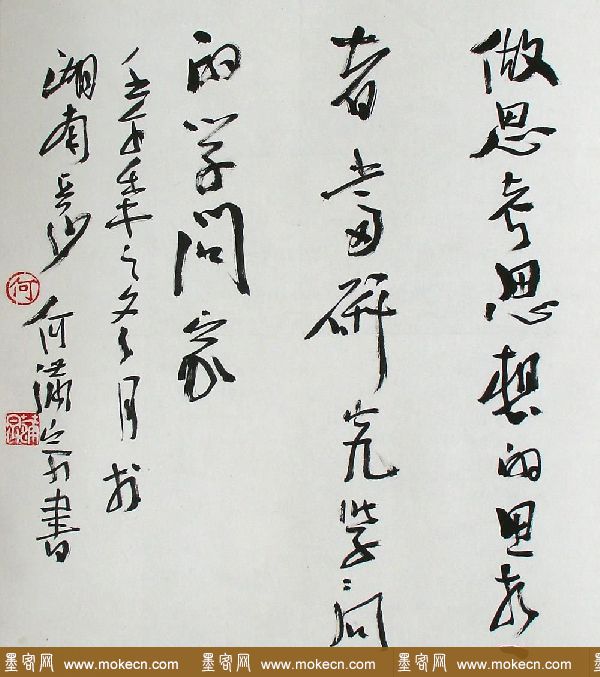 做思考思想的思考
者當研究學問
的学问家
壬午年之冬月於
湖南長沙 何滿宗書
何
墨客网 www.mokecn.com 墨客网 www.mokecn.com 墨客网 www.mokecn.com